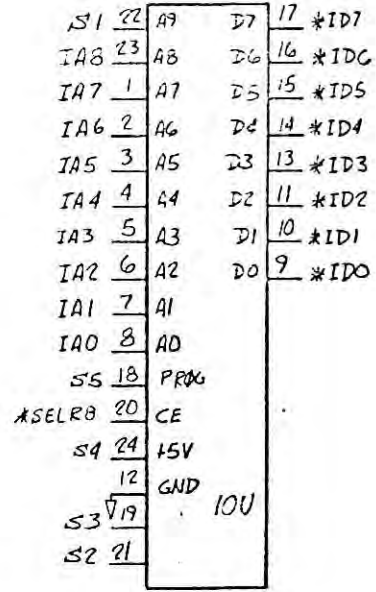 S1 22 A9 D7 17 *ID7
IA8 23 A8 D6 16 *ID6
IA7 1 A7 D5 15 *ID5
IA6 2 A6 D4 14 *ID4
IA5 3 A5 D3 13 *ID3
IA4 4 A4 D2 11 *ID2
IA3 5 A3 D1 10 *ID1
IA2 6 A2 D0 9 *ID0
IA1 7 A1
IA0 8 A0
S5 18 PROG
*SELR8 20 CE
S4 24 +5V
12 GND
S3 19 10U
S2 21